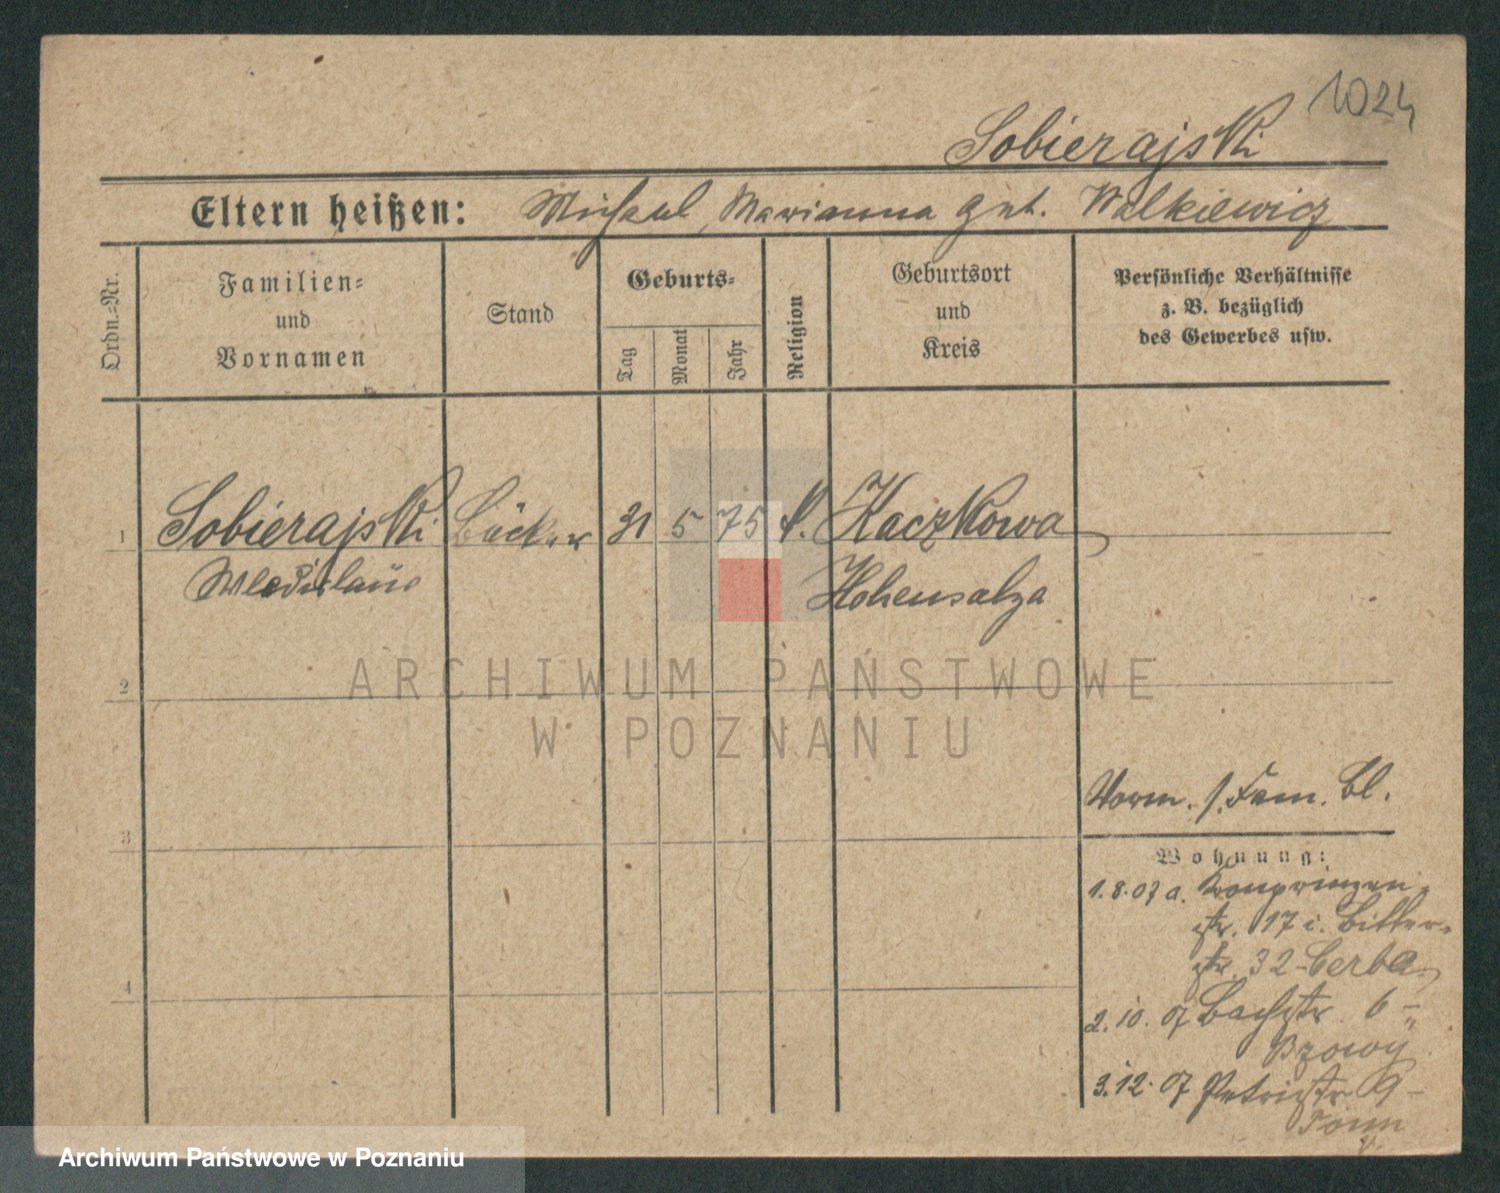 1024
Sobierajski
Eltern heißen: Michael, Marianna geb. Walkiewicz
Ordn.-Nr.
Familien-
und
Vornamen
Stand
Geburts-
Tag
Monat
Jahr
Religion
Geburtsort
und
Kreis
Persönliche Verhältnisse
z. B. bezüglich
des Gewerbes usw.
1 Sobierajski Bäcker 31 5 75 k. Kaczkowa
Wladislaus Hohensalza
2
ARCHIWUM PAŃSTWOWE
W POZNANIU
Vorm. s. Fam. Bl.
3
Wohnung:
1.8.07 a. Kronprinzen-
str. 17 i. Bitter-
str. 32 Cerba
4
2.10.07 Bachstr. 6 -
Bzowy
3.12.07 Petristr 9 -
Archiwum Państwowe w Poznaniu